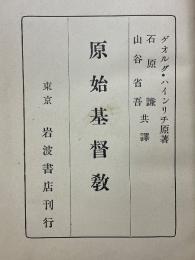 ゲオルグ・ハインリチ原著
石原謙
山谷省吾共譯
原始基督教
東京 岩波書店刊行